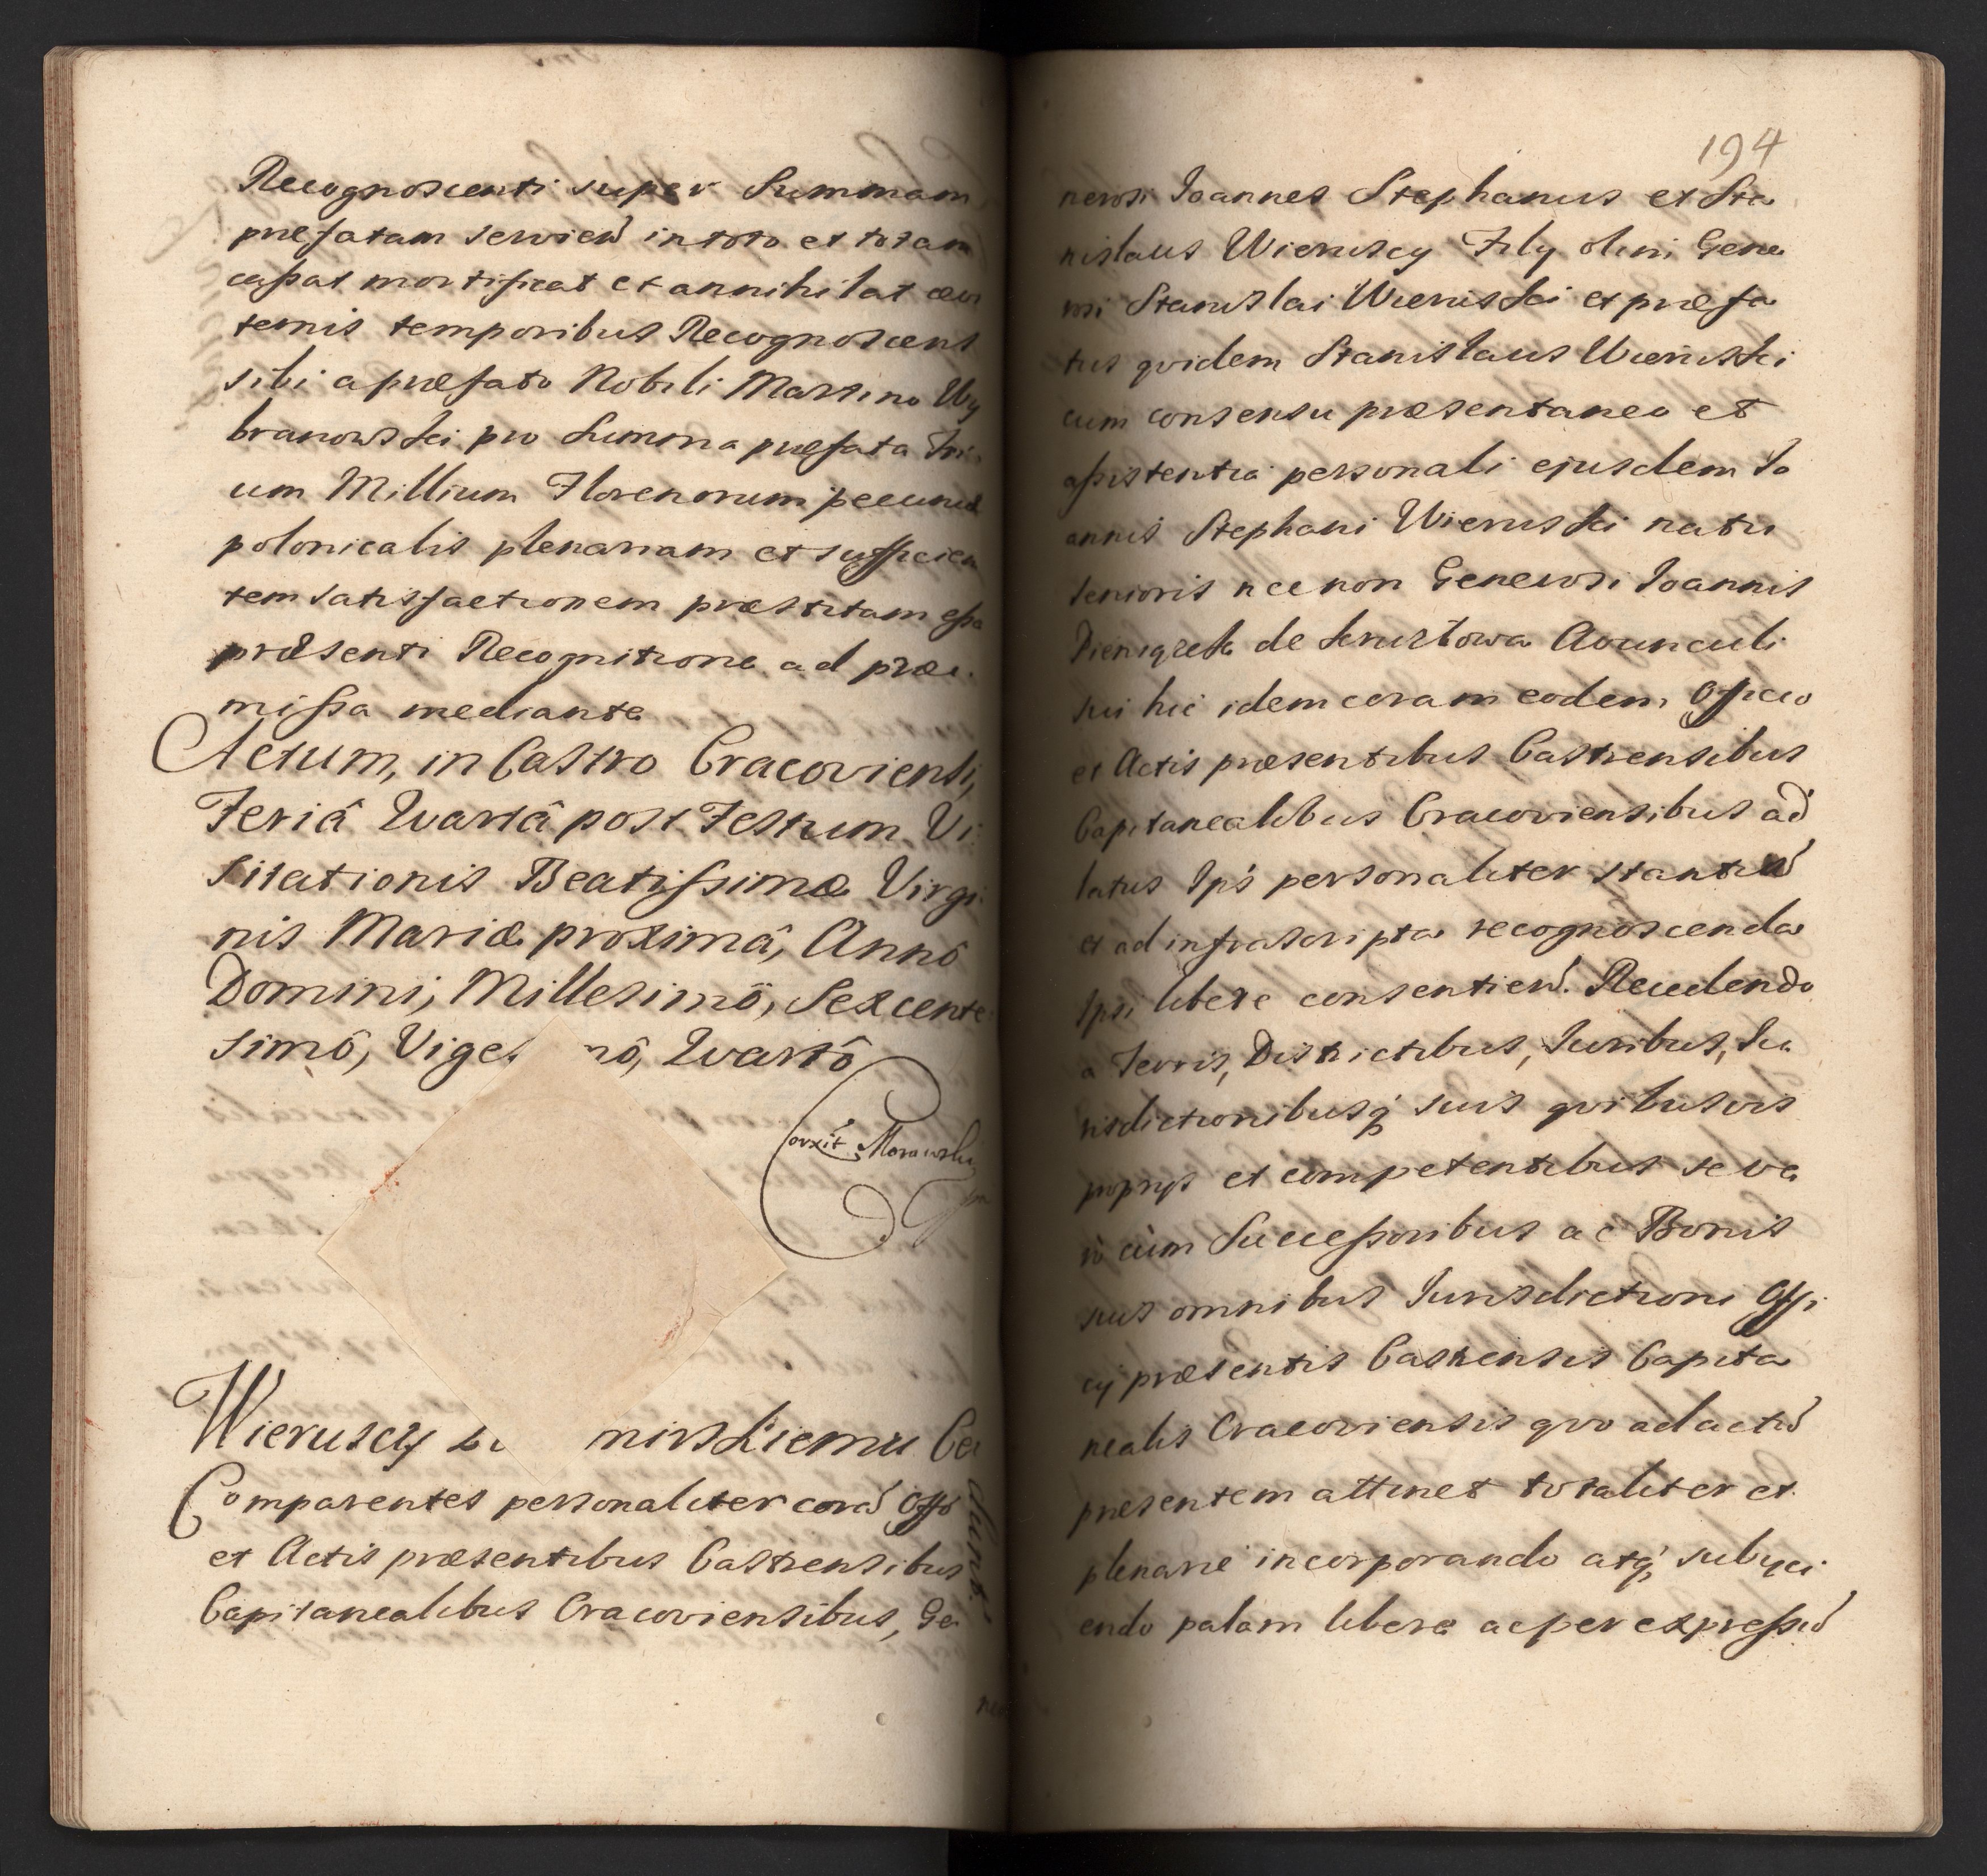 Recognoscenti super Summam
præfatam servień in toto et totam
caſsat mortificat et annihilat ævi
ternis temporibus Recognoscens
sibi a præfato Nobili Martino Wy
branowski pro Summa præfata Tri
um Millium Florenorum pecuniæ
polonicalis plenariam et sufficien
tem satisfactionem præstitam eſse
præsenti Recognitione ad præ
miſsa mediante
Actum, in Castro Cracoviensi,
Feriâ Quartâ post Festum Vi
sitationis Beatiſsimæ Virgi
nis Mariæ proximâ, Annô
Domini, Millesimô, Sexcente
simô, Viges mô, Quartô
Corxit Morawski
Wieruscy nirskiemu
Comparentes personaliter corá Offo
et Actis præsentibus Castrensibus
Capitanealibus Cracoviensibus, Ge
194
nerosi Joannes Stephanus et Sta
nislaus Wieruscy Fily olim Gene
rosi Stanislai Wieruski et præfa
tus quidem Stanislaus Wieruski
cum consensu præsentaneo et
aſsistentia personali ejusdem Jo
annis Stephani Wieruski natu
senioris nec non Generosi Joannis
Pieniązek de Kruzlowa Avunculi
sui hic idem coram eodem Officio
et Actis præsentibus Castrensibus
Capitanealibus Cracoviensibus ad
latus Ips personaliter
et ad infrascripta recognoscenda
Ipsi libere consentień. Recedendo
a Terris, Districtibus, Juribus, Ju
risdictionibusq suis quibusvis
proprys et competentibus seve
ro cum Succeſsoribus ac Bonis
suis omnibus Jurisdictioni Offi
cy præsentis Castrensis Capita
nealis Cracoviensis quo ad actú
præsentem attinet totaliter et
plenarie incorporando atq subyci
endo palam libere ac per expreſsú